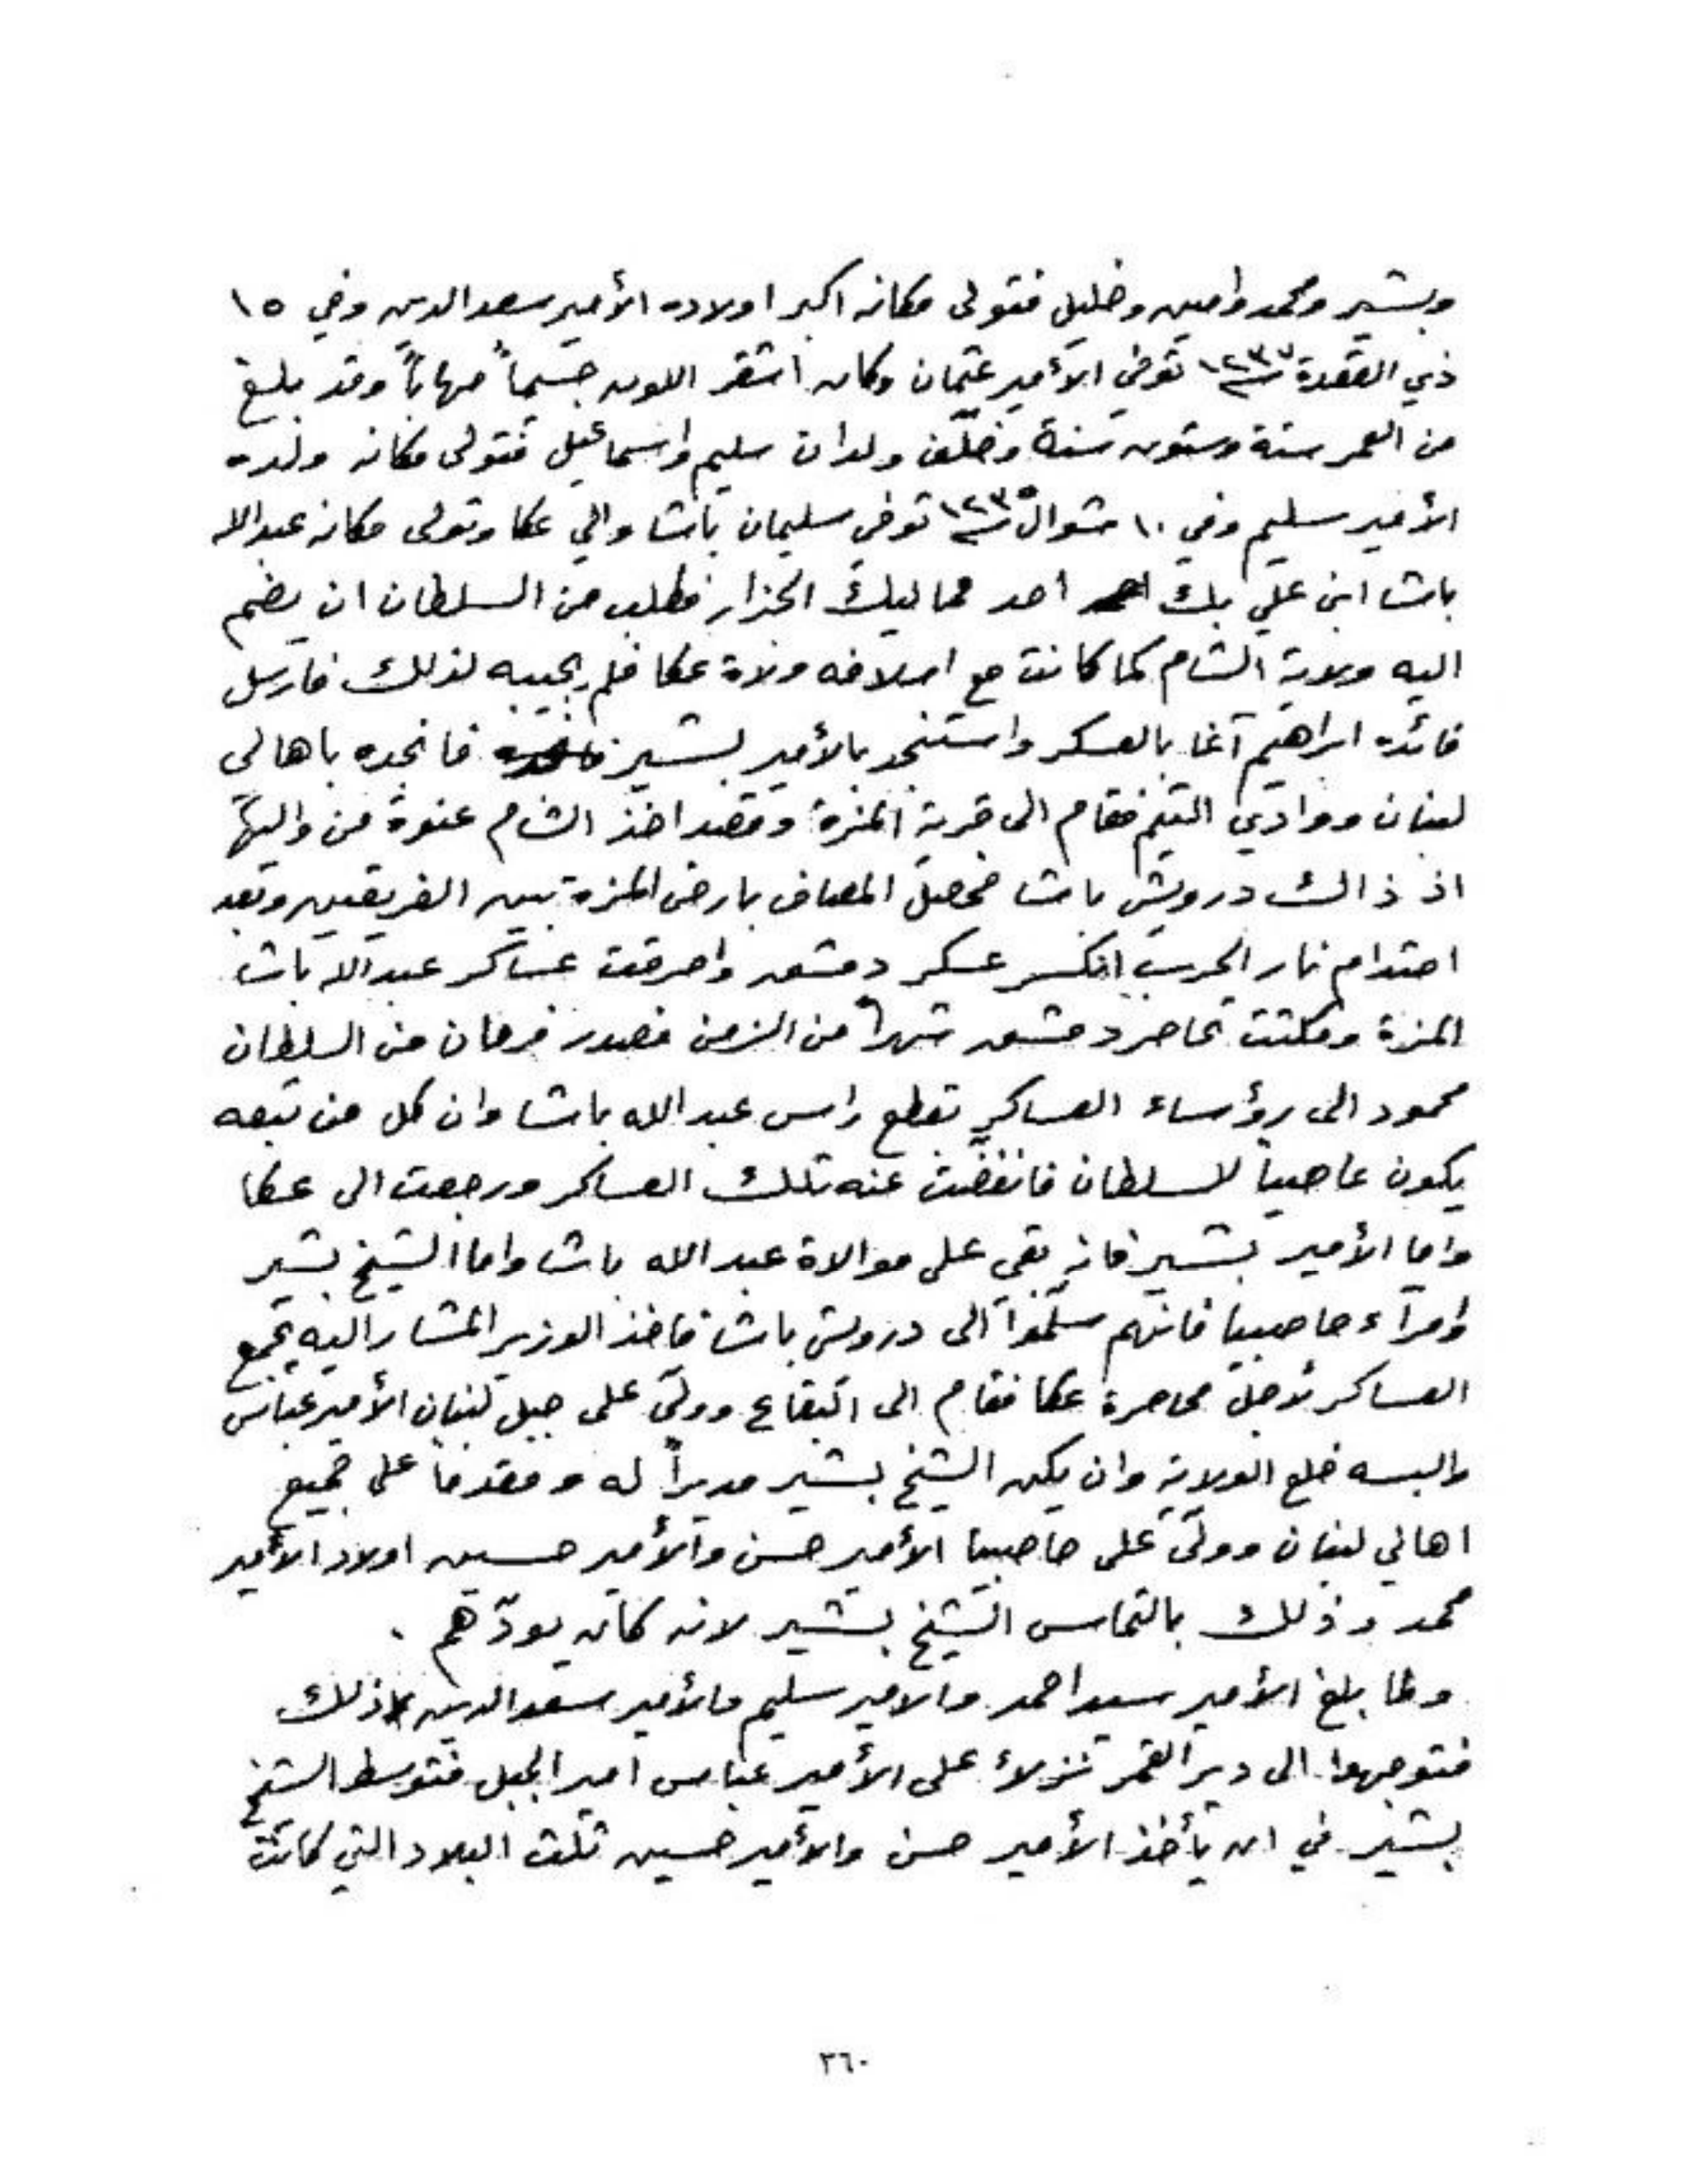 وبشير ومحمد وامين وخليل فتولى مكانه اكبر اولاده الأمير سعد الدين وفي ١٥
ذي القعدة سنة ١٢٣٣ توفي الأمير عثمان وكان اشقر اللون جسيماً مهاباً وقد بلغ
من العمر ستة وستون سنة وخلّف ولدان سليم واسماعيل فتولى مكانه ولده
الأمير سليم وفي ١٠ شوال سنة ١٢٣٥ توفي سليمان باشا والي عكا وتولى مكانه عبد الله
باشا ابن علي بك احد مماليك الجزار فطلب من السلطان ان يضم
اليه ولاية الشام كما كانت مع اسلافه ولاة عكا فلم يجيبه لذلك فارسل
قائده ابراهيم آغا بالعسكر واستنجد بالأمير بشير فانجده باهالي
لبنان ووادي التيم فقام الى قرية المزة وقصد اخذ الشام عنوة من واليها
اذ ذالك درويش باشا فحصل المصاف بارض المزة بين الفريقين وبعد
احتدام نار الحرب انكسر عسكر دمشق واحرقت عساكر عبد الله باشا
المزة ومكثت تحاصر دمشق شهراً من الزمن فصدر فرمان من السلطان
محمود الى رؤساء العساكر تقطع راس عبد الله باشا وان كل من تبعه
يكون عاصياً للسلطان فانفضت عنه تلك العساكر ورجعت الى عكا
واما الأمير بشير فانه بقي على موالاة عبد الله باشا واما الشيخ بشير
وامرآء حاصبيا فانهم سلّموا الى درويش باشا فاخذ الوزير المشار اليه بجمع
العساكر لأجل محاصرة عكا فقام الى البقاع وولّى على جبل لبنان الأمير عباس
والبسه خلع الولاية وان يكن الشيخ بشير مدبراً له ومقدماً على جميع
اهالي لبنان وولّى على حاصبيا الأمير حسن والأمير حسين اولاد الأمير
محمد وذلك بالتماس الشيخ بشير لانه كان يودّهم .
ولما بلغ الأمير سيد احمد والامير سليم والأمير سعد الدين ذلك
فتوجهوا الى دير القمر نزلاً على الأمير عباس امير الجبل فتوسط الشيخ
بشير في ان يأخذ الأمير حسن والأمير حسين ثلث البلاد التي كانت
٣٦٠